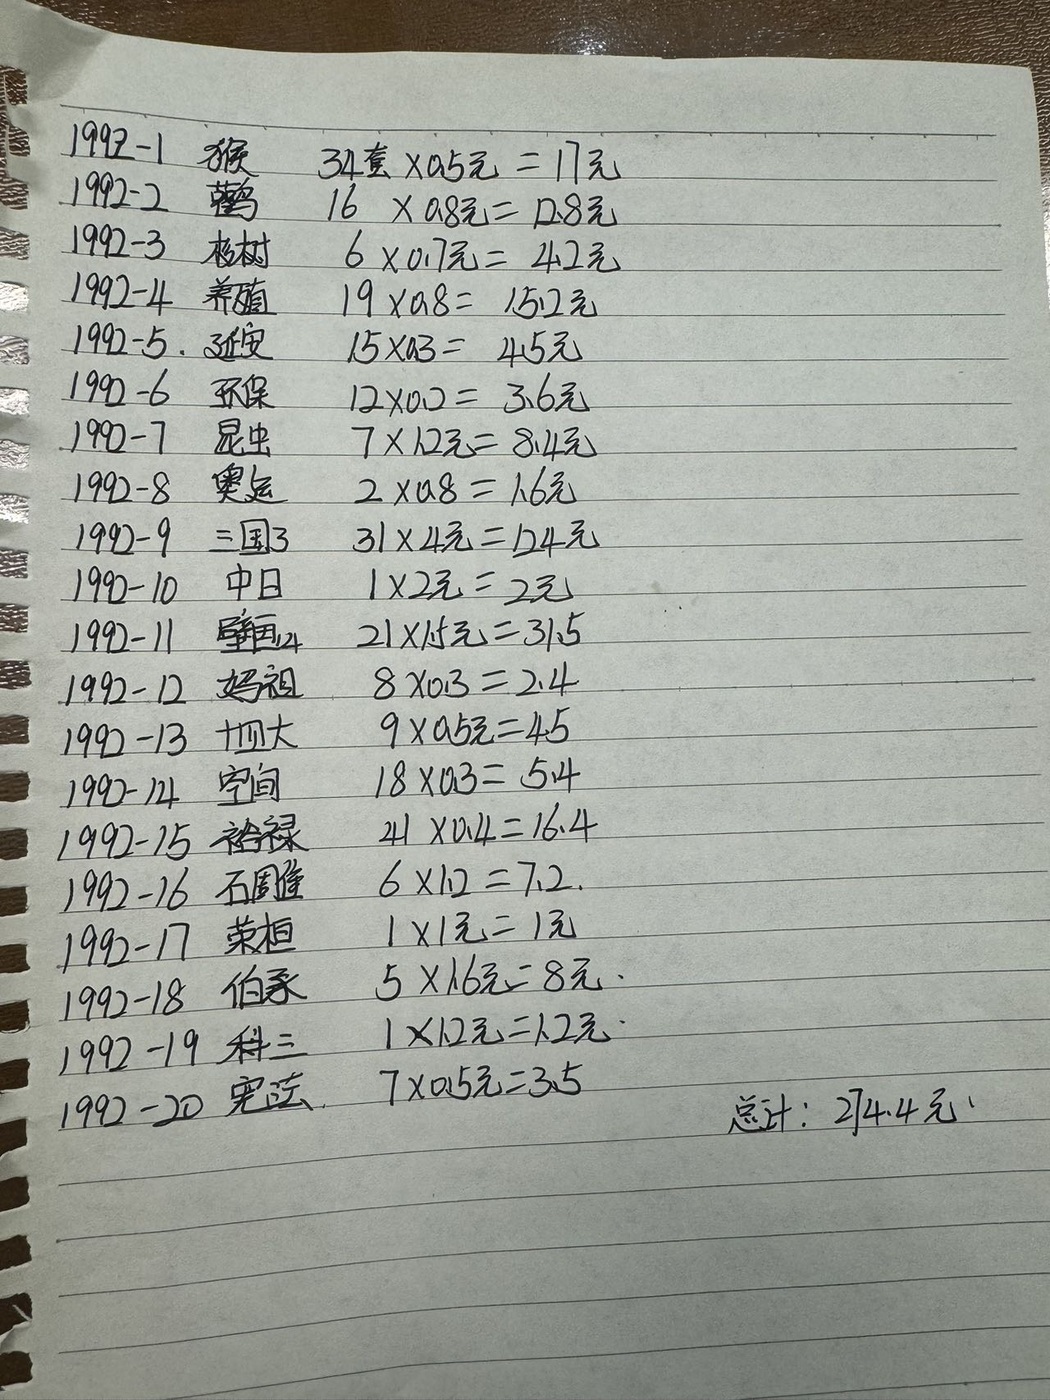 1992-1 猴 34套×0.5元=17元
1992-2 鹳 16 ×0.8元=12.8元
1992-3 杉树 6×0.7元=4.2元
1992-4 养殖 19×0.8=15.2元
1992-5. 延安 15×0.3=4.5元
1992-6 环保 12×0.2=3.6元
1992-7 昆虫 7×1.2元=8.4元
1992-8 奥运 2×0.8=1.6元
1992-9 三国3 31×4元=124元
1992-10 中日 1×2元=2元
1992-11 壁画4 21×1.5元=31.5
1992-12 妈祖 8×0.3=2.4
1992-13 十四大 9×0.5元=4.5
1992-14 空间 18×0.3=5.4
1992-15 裕禄 41×0.4=16.4
1992-16 石雕 6×1.2=7.2.
1992-17 荣桓 1×1元=1元
1992-18 伯承 5×1.6元=8元.
1992-19 科三 1×1.2元=1.2元.
1992-20 宪法. 7×0.5元=3.5
总计: 274.4元